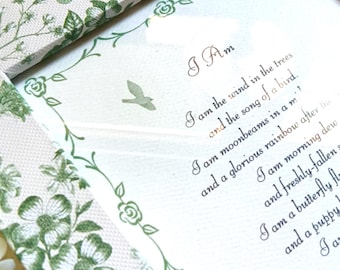 I Am
I am the wind in the trees
and the song of a bird.
I am moonbeams in a
and a glorious rainbow after
I am morning dew
and freshly-fallen
I am a butterfly
and a puppy
I